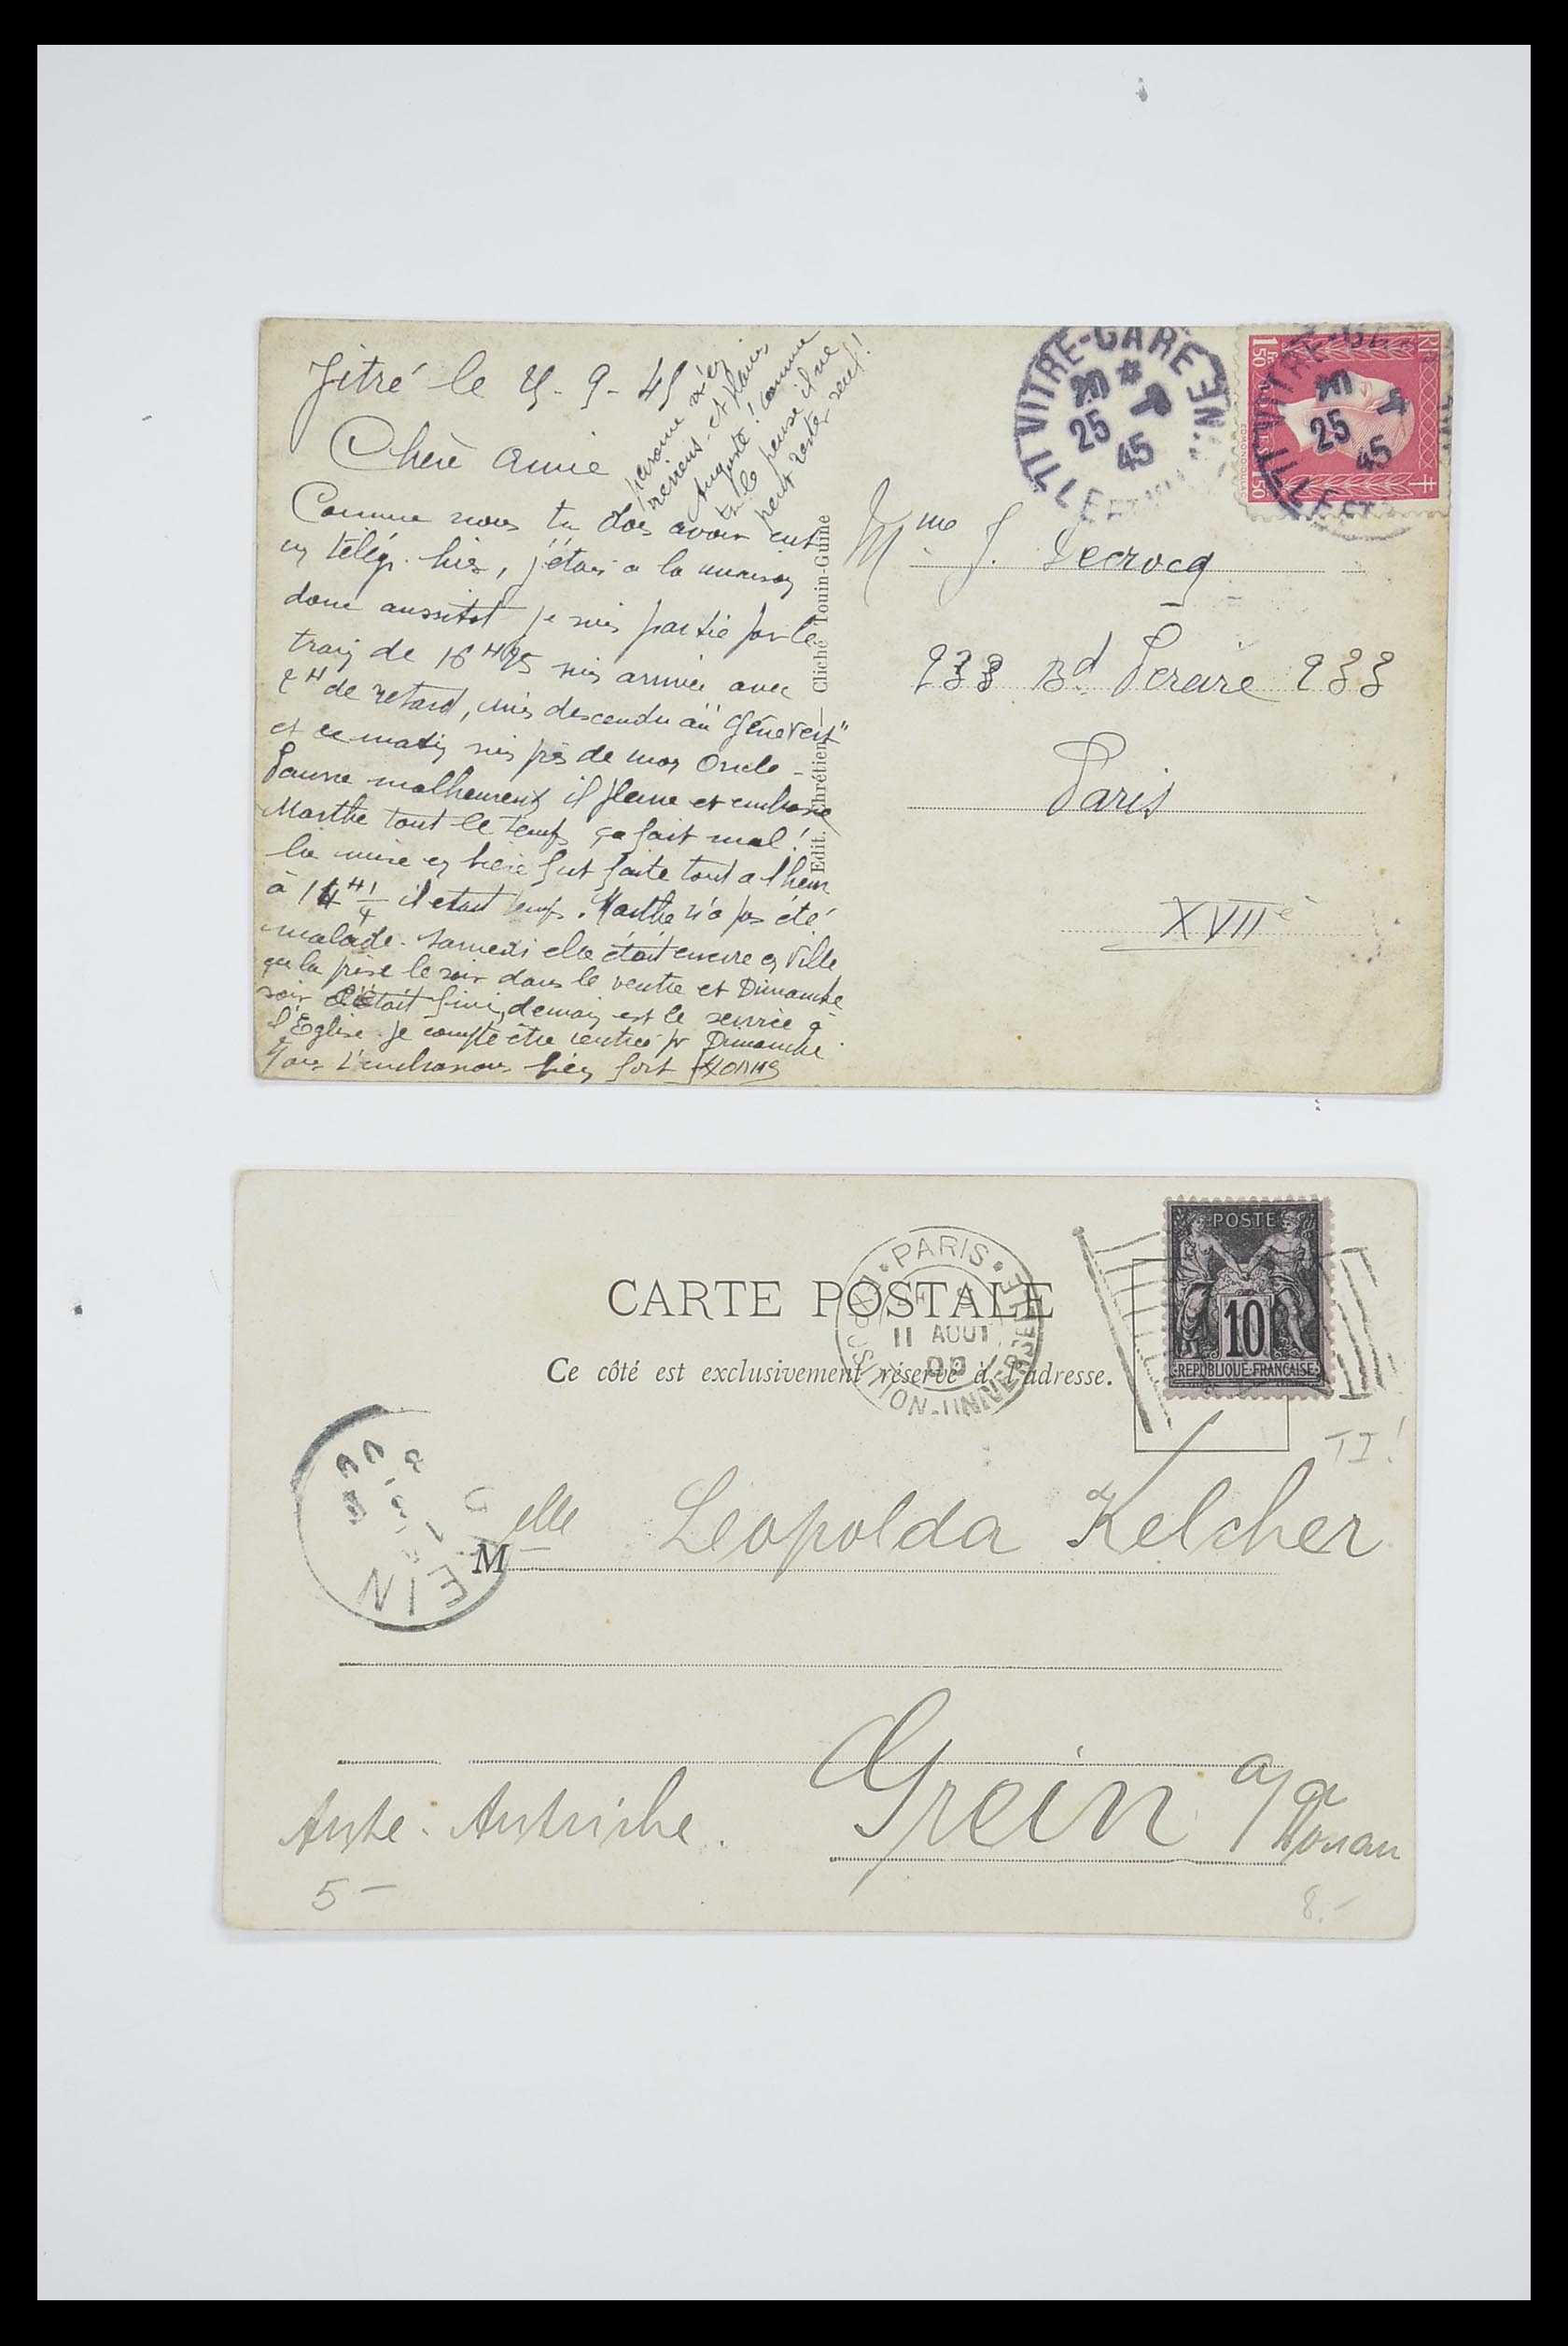 Vitré le 25-9-45
Chère Amie
personne n'en
reviens - et plains
Auguste ! comme
tu le pense il ne
peut rester seul !
Comme nous tu dois avoir eut
un télég. hier, j'étais a la maison
donc aussitot je suis partie par le
train de 16 H 25 suis arrivée avec
2 H de retard, suis descendu au "Chêne Vert"
et ce matin suis près de mon Oncle -
Pauvre malheureux il pleure et embrasse
Marthe tout le temps ça fait mal !
la mise en bière fut faite tout a l'heure
à 14 H 1/4 il etait temps. Marthe n'a pas été
malade - Samedi elle était encore en Ville
ça la prise le soir dans le ventre et Dimanche
soir c'était fini, demain est le service à
l'Eglise. Je compte être rentrée pr Dimanche
Nous t'embrassons bien fort
Edit. Chrétien — Cliché Touin-Guine
VITRE-GARE
ILLE-ET-VILAINE
25
45
1F50
VITRE-GARE
25
45
Mme J. Lecrocq
233 Bd Pereire 233
Paris
XVIIè
CARTE POSTALE
Ce côté est exclusivement réservé à l'adresse.
PARIS
EXPOSITION-UNIVERSELLE
11 AOUT
00
POSTE
10
REPUBLIQUE FRANCAISE
TI!
EIN
Melle Leopolda Kelcher
Grein a/a
Donau
Aute-Autriche.
5-
8.-